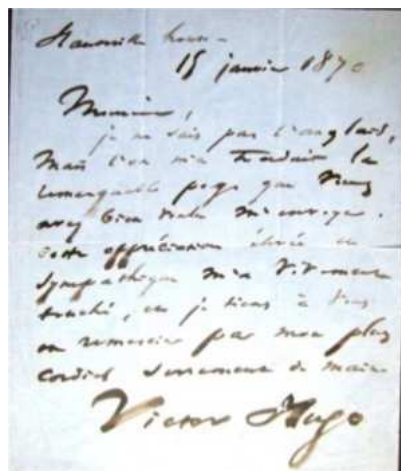 Hauteville house –
15 janvier 1870
Monsieur,
je ne sais pas l'anglais,
mais l'on m'a traduit la
remarquable page que vous
avez bien voulu m'envoyer.
cette appréciation élevée et
sympathique m'a vivement
touché, et je tiens à vous
en remercier par mon plus
cordial serrement de main.
Victor Hugo